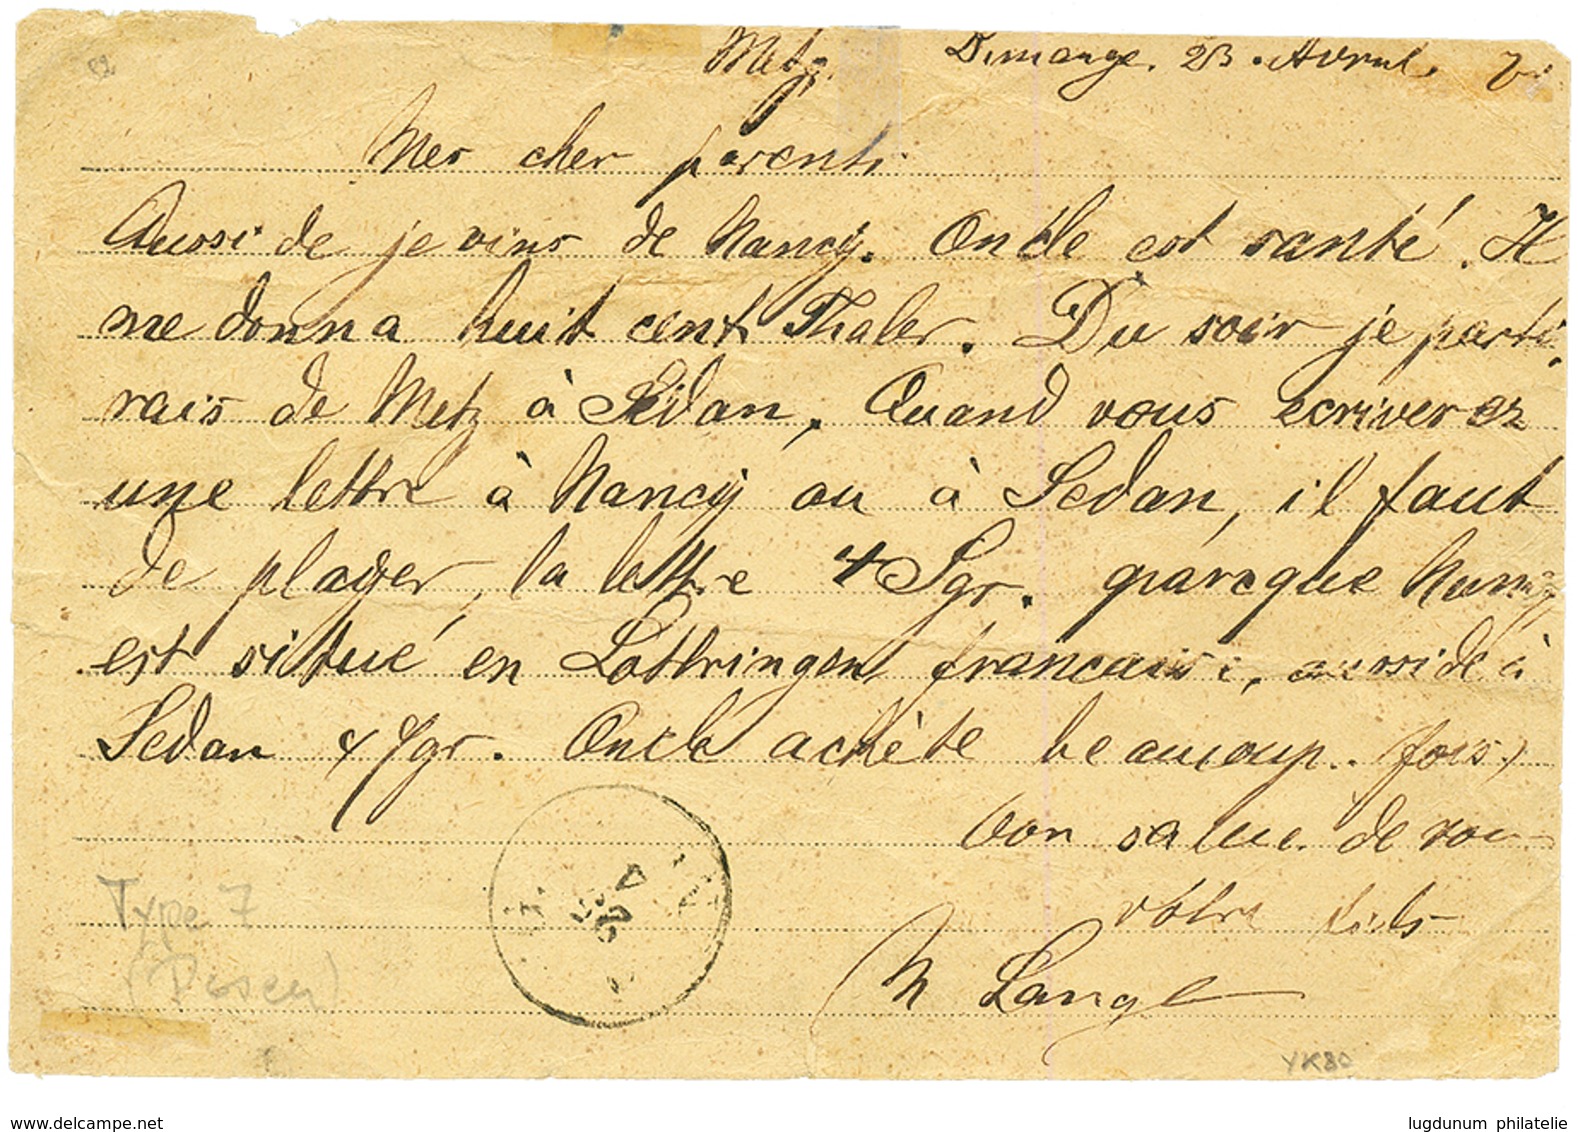 Metz, Dimange. 23. Avrul. 7
Mes cher parents.
Aussi de je vins de Nancy. Oncle est santé. Il
me donna huit cent Thaler. Du soir je parti
rais de Metz à Sedan, Quand vous ecriverez
une lettre à Nancy ou à Sedan, il faut
de player, la lettre 4 Sgr. parcque Nancy
est situé en Lothringen francaise, aussi de à
Sedan 4 Sgr. Oncle achète beaucoup.. (fois)
bon salue. de
vôtre fils
N Lange
Type 7
(Posen)
YK80
www.delcampe.net
lugdunum philatelie